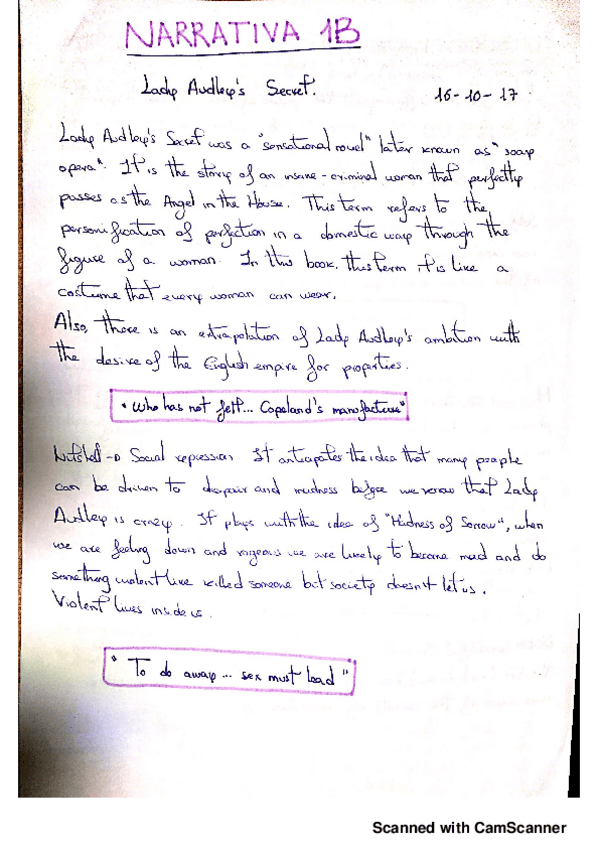 NARRATIVA 1B
Lady Audley's Secret.
16-10-17
Lady Audley's Secret was a "sensational novel" later known as "soap
opera". It is the story of an insane-criminal woman that perfectly
passes as the Angel in the House. This term refers to the
personification of perfection in a domestic way through the
figure of a woman. In this book, this term it is like a
costume that every woman can wear.
Also, there is an extrapolation of Lady Audley's ambition with
the desire of the English empire for properties.
"Who has not felt... Copeland's manufacture"
Nutshell → Social repression. It anticipates the idea that many people
can be driven to despair and madness before we know that Lady
Audley is crazy. It plays with the idea of "Madness of Sorrow", when
we are feeling down and we are likely to become mad and do
something violent like killed someone but society doesn't let us.
Violent lives inside us.
"To do away... sex must lead"
Scanned with CamScanner